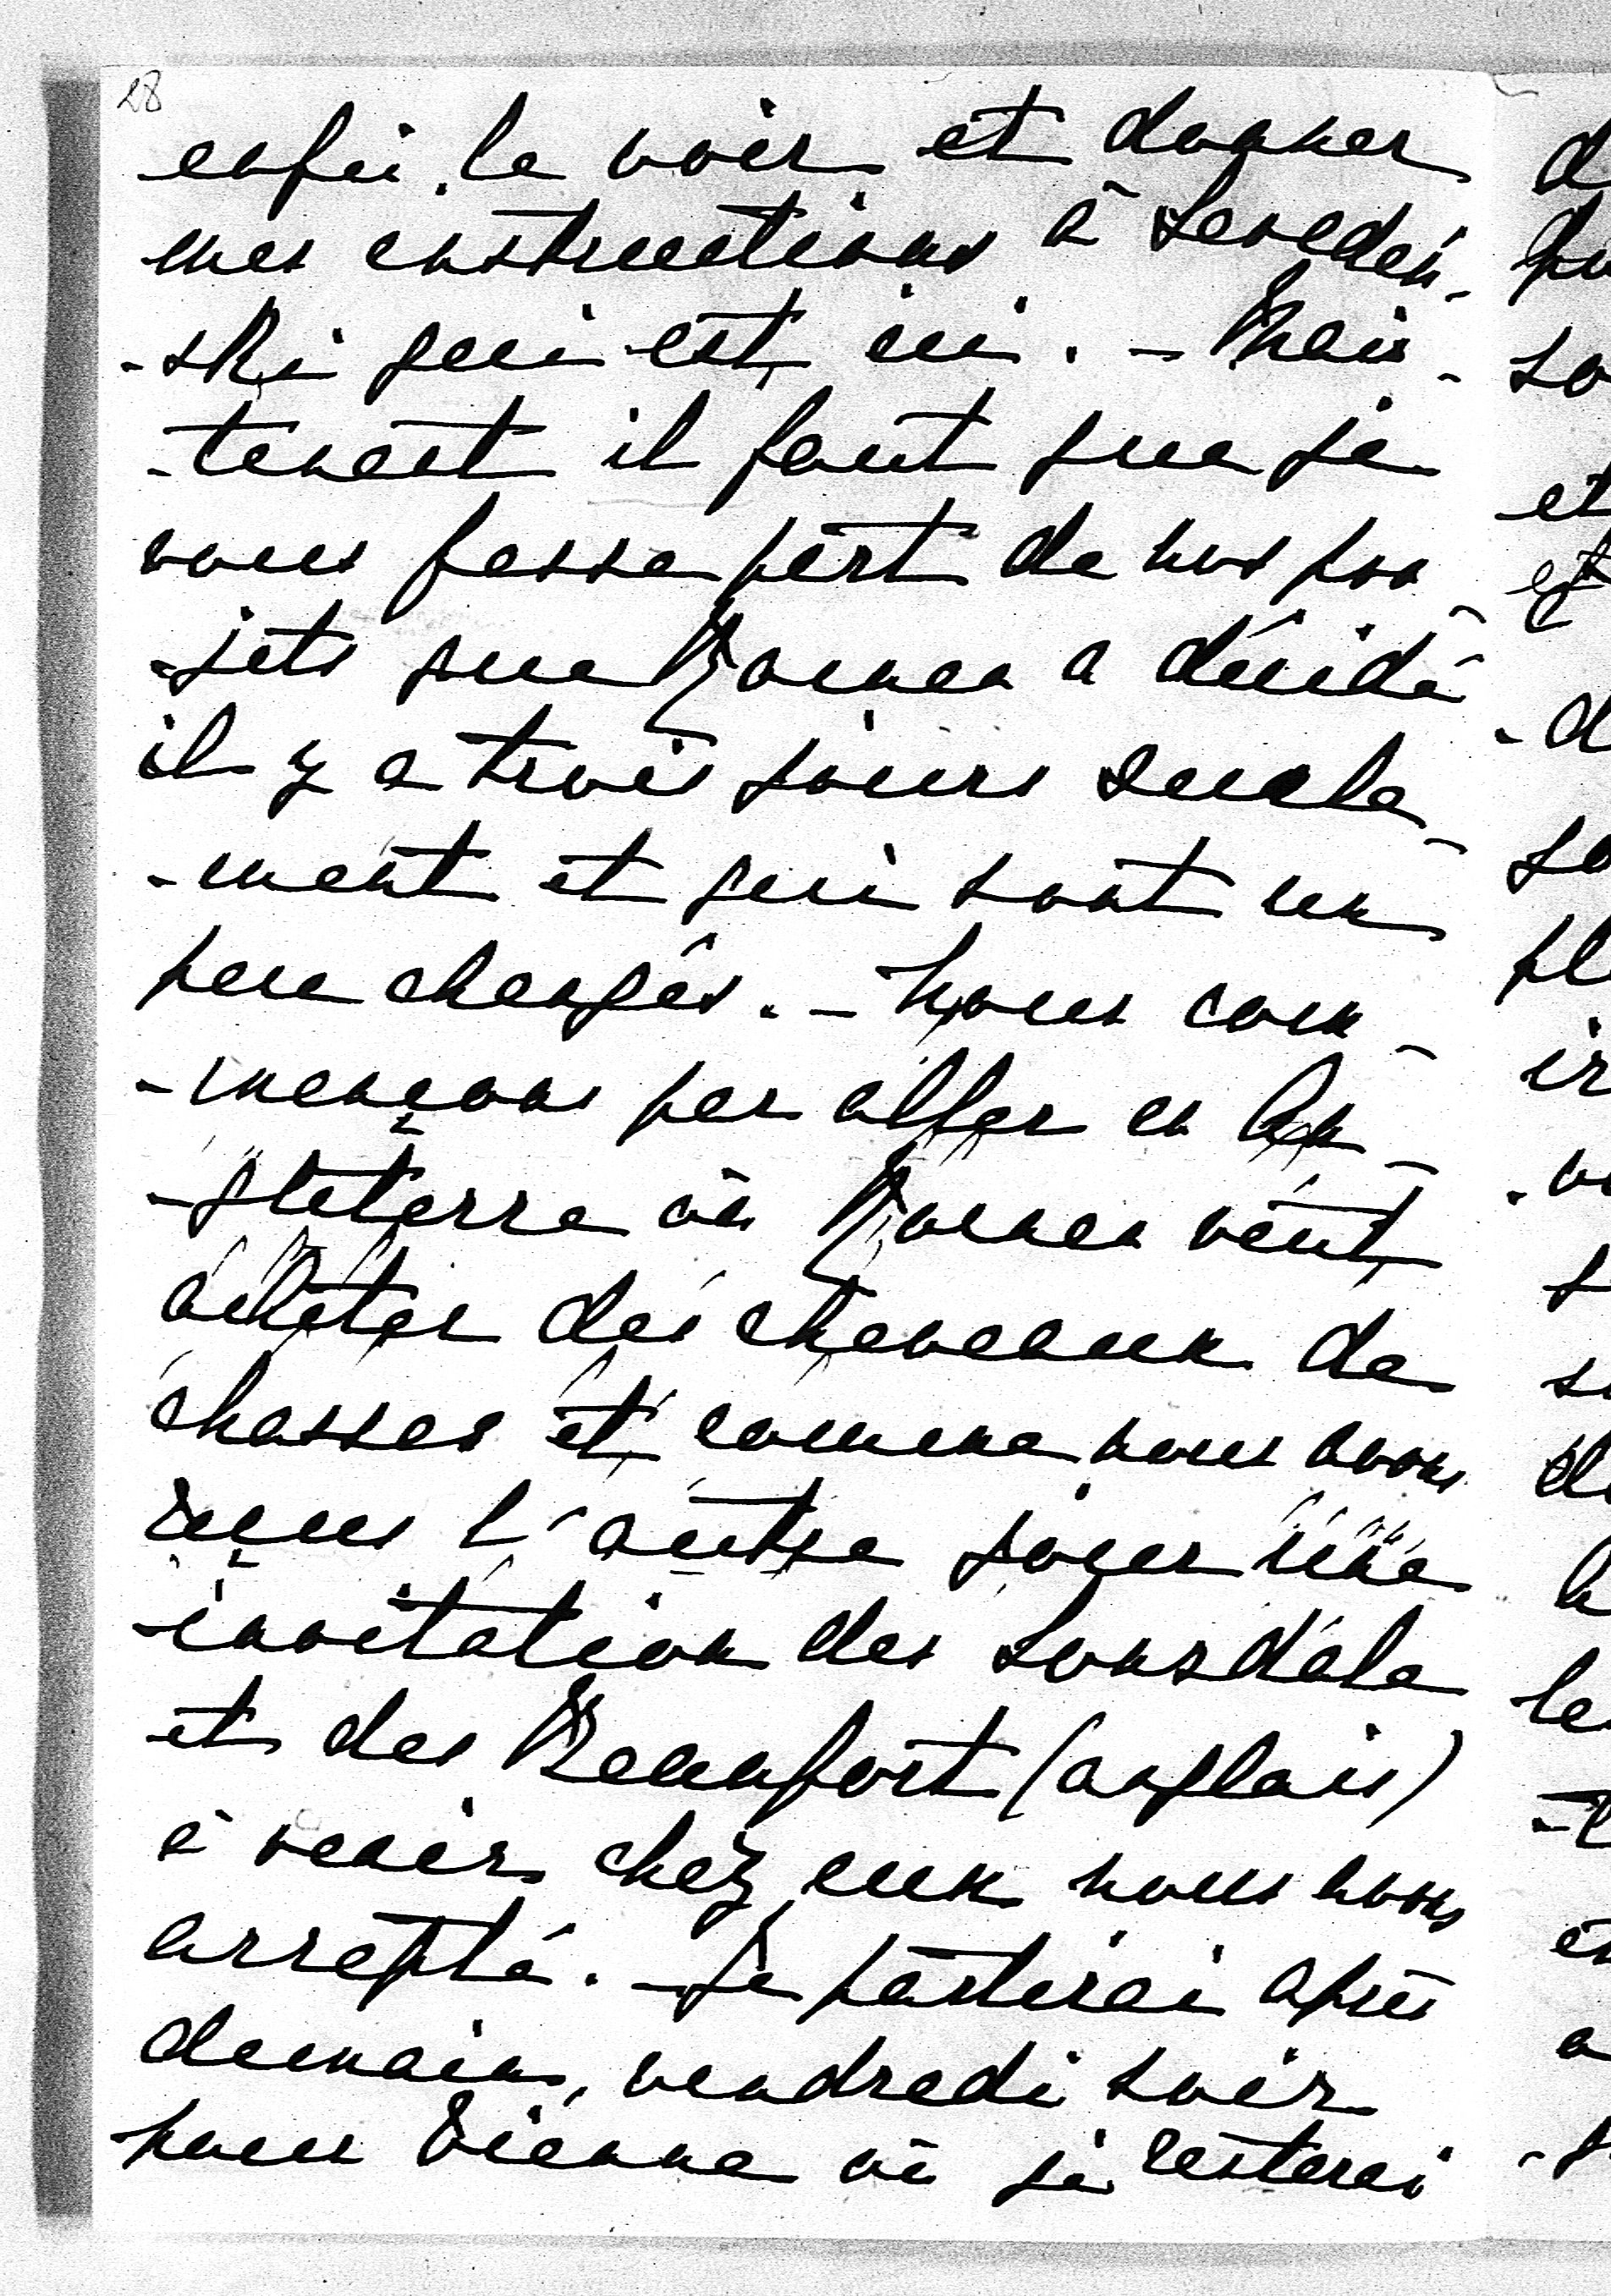 28
enfin le voir et donner
mes instructions à
-ski qui est ici. - Main-
-tenant il faut que je
vous fasse part de nos pro-
-jets que Roman a décidé
il y a trois jours seule-
-ment et qui sont un
peu changés. - Nous com-
-mençons par aller en An-
-gleterre où Roman veut
acheter des chevaux de
chasses et comme nous avons
reçus l'autre jour une
invitation des Lonsdale
et des Beaufort (anglais)
à venir chez eux nous avons
accepté. - Je partirai après
demain, vendredi soir
pour Vienne où je resterai